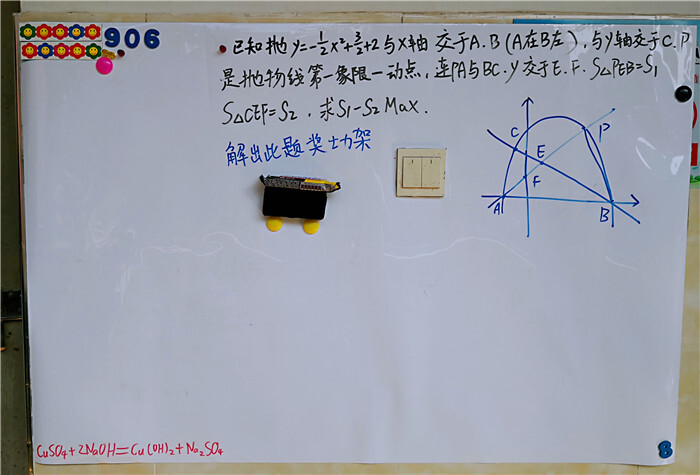 906
已知抛y=-½x²+3/2+2与X轴交于A.B(A在B左),与Y轴交于C.P
是抛物线第一象限一动点,连PA与BC.Y交于E.F.S△PEB=S₁
S△CEF=S₂,求S₁-S₂Max.
解出此题奖士力架
C
P
E
F
A
B
CuSO₄+2NaOH=Cu(OH)₂+Na₂SO₄
8